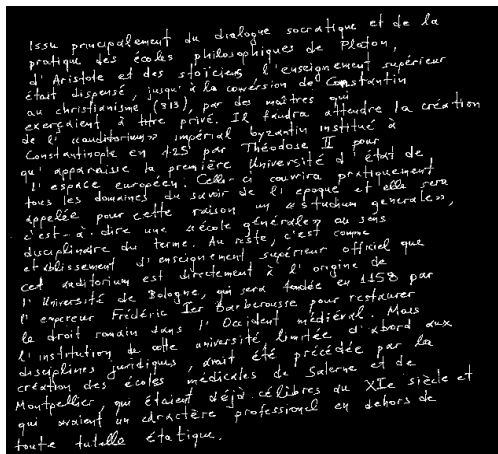 Issu principalement du dialogue socratique et de la
pratique des écoles philosophiques de Platon,
d'Aristote et des stoïciens, l'enseignement supérieur
était dispensé, jusqu'à la conversion de Constantin
au christianisme (313), par des maîtres qui
exerçaient à titre privé. Il faudra attendre la création
de l'«auditorium» impérial byzantin institué à
Constantinople en 425 par Théodose II pour
qu'apparaisse la première Université d'état de
l'espace européen. Celle-ci couvrira pratiquement
tous les domaines du savoir de l'epoque et elle sera
appelée pour cette raison un «studium generale»,
c'est-à-dire une «école générale» au sens
disciplinaire du terme. Au reste, c'est comme
etablissement d'enseignement supérieur officiel que
cet auditorium est directement à l'origine de
l'Université de Bologne, qui sera fondée en 1158 par
l'empereur Frédéric Ier Barberousse pour restaurer
le droit romain dans l'Occident médiéval. Mais
l'institution de cette université, limitée d'abord aux
disciplines juridiques, avait été précédée par la
création des écoles médicales de Salerne et de
Montpellier, qui étaient déjà célibres au XIe siècle et
qui avaient un caractère professionel en dehors de
toute tutelle étatique.